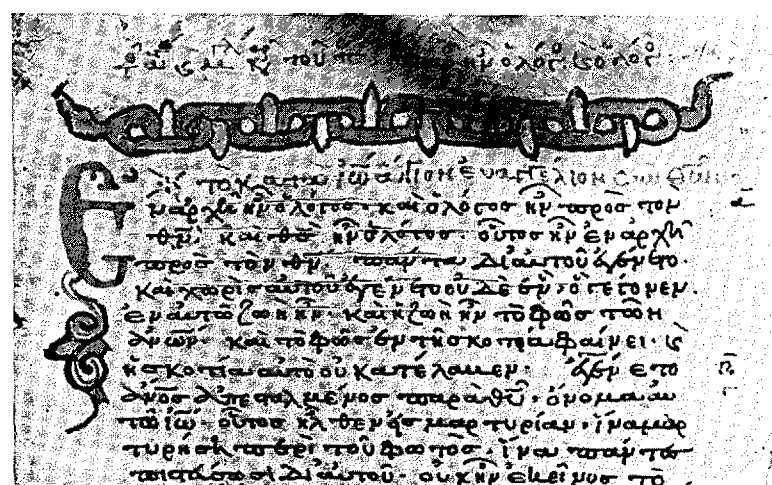 τὸ κατὰ ἰω̅ά̅ννην εὐαγγέλιον
Ἐν ἀρχῇ ἦν ὁ λόγος· καὶ ὁ λόγος ἦν πρὸς τὸν
θ̅ν̅· καὶ θ̅ς̅ ἦν ὁ λόγος· οὗτος ἦν ἐν ἀρχῇ
πρὸς τὸν θ̅ν̅· πάντα δι' αὐτοῦ ἐγένετο·
καὶ χωρὶς αὐτοῦ ἐγένετο οὐδὲ ἕν· ὃ γέγονεν.
ἐν αὐτῶ ζωὴ ἦν· καὶ ἡ ζωὴ ἦν τὸ φῶς τῶν
α̅ν̅ω̅ν̅· καὶ τὸ φῶς ἐν τῇ σκοτία φαίνει· ϗ
ἡ σκοτία αὐτὸ οὐ κατέλαβεν· ἐγένετο
α̅ν̅ο̅ς̅ ἀπεσταλμένος παρὰ θ̅υ̅· ὄνομα αὐ
τῶ ἰω̅· οὗτος ἦλθεν εἰς μαρτυρίαν· ἵνα μαρ
τυρήση περὶ τοῦ φωτὸς· ἵνα πάντες
πιστεύσωσι δι' αὐτοῦ· οὐκ ἦν ἐκεῖνος τὸ